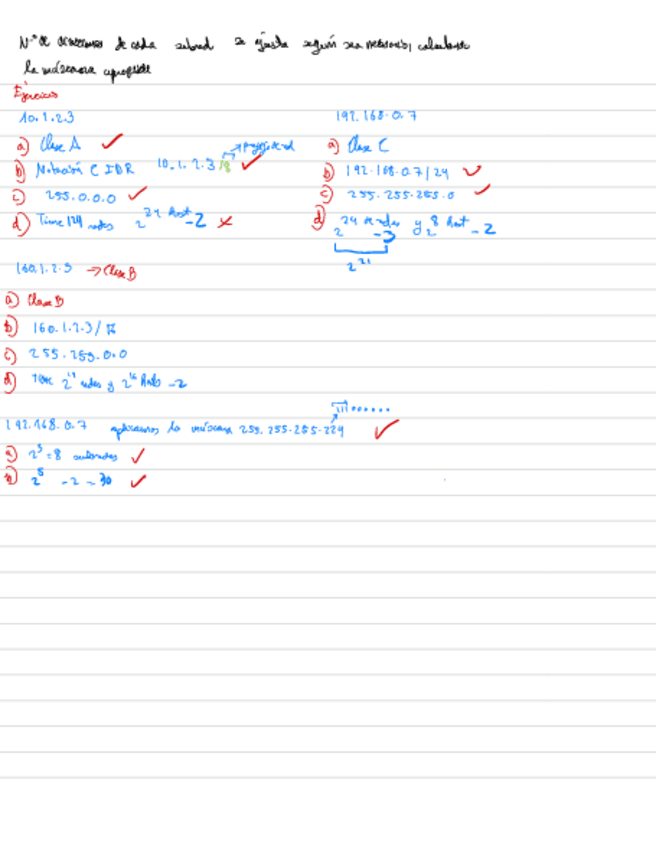 Nº de direcciones de cada subred se ajusta según sea necesario, calculando
la máscara apropiada
Ejercicios
10.1.2.3
a) Clase A
b) Notación CIDR 10.1.2.3/8
c) 255.0.0.0
d) Tiene 124 redes 2^24 host -2
192.168.0.7
a) Clase C
b) 192.168.0.7/24
c) 255.255.255.0
d) 2^24 de redes -3 y 2^8 host -2
2^21
160.1.2.3 → Clase B
a) Clase B
b) 160.1.2.3/
c) 255.255.0.0
d) 2 redes y 2^16 hosts -2
111
192.168.0.7 aplicamos la máscara 255.255.255.224
a) 2^3 = 8 subredes
b) 2^5 -2 = 30